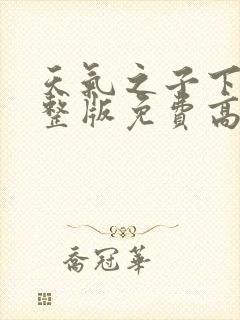 天氣之子下
整版免費高
喬冠華